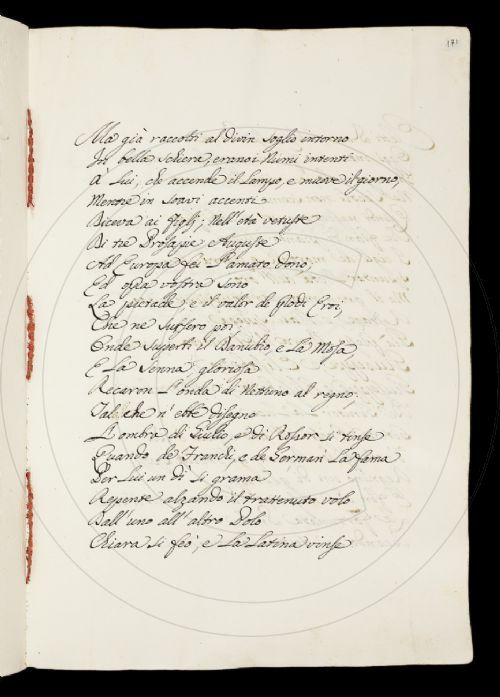 171
Ma già raccolti al divin Soglio intorno
In bella Schiera, erano i Numi intenti
A' Lui, che accende il Lampo, e muove il giorno,
Mentre in Soavi accenti
Diceva ai Figlj; Nell'età vetuste
Di tre Prosapie Auguste
Ad Europa fei l'amato dono,
Ed opra vostra sono
La pietade, e il valor de prodi Eroi,
Che ne Sursero poi,
Onde Superbi il Danubio, e La Mosa,
E La Senna gloriosa
Recaron l'onda di Nettuno al regno:
Tale che n'ebbe disegno
L'ombra di Giulio, e di Rossor Si tinse
Quando de Franchi, e de Germani La fama
Per Lui un dì Si grama
Repente alzando il trattenuto volo
Dall'uno all'altro Polo
Chiara Si feò, e La Latina vinse